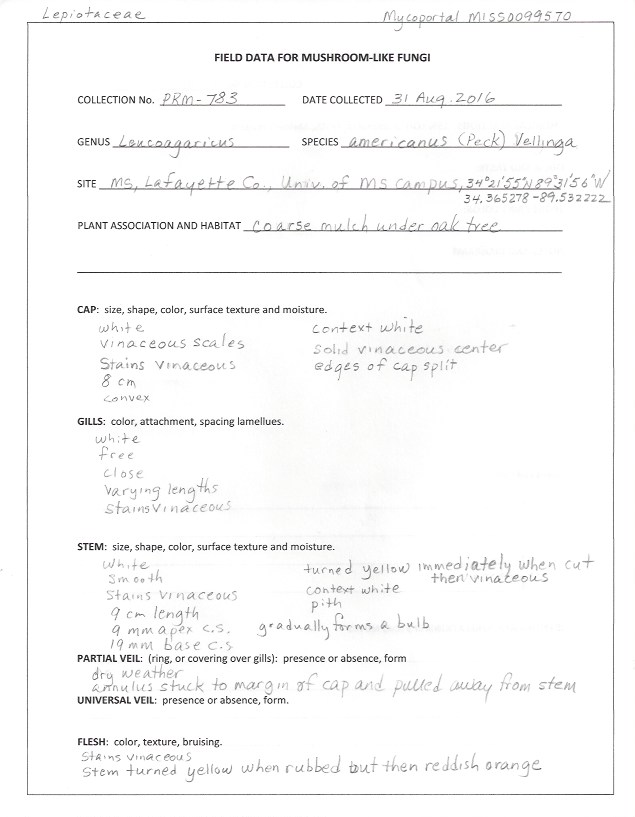 Lepiotaceae Mycoportal MISS0099570
FIELD DATA FOR MUSHROOM-LIKE FUNGI
COLLECTION No. PRM-783 DATE COLLECTED 31 Aug. 2016
GENUS Leucoagaricus SPECIES americanus (Peck) Vellinga
SITE MS, Lafayette Co., Univ. of MS campus, 34°21'55"N 89°31'56"W
34.365278 -89.532222
PLANT ASSOCIATION AND HABITAT coarse mulch under oak tree
CAP: size, shape, color, surface texture and moisture.
white
vinaceous scales
Stains vinaceous
8 cm
convex
context white
solid vinaceous center
edges of cap split
GILLS: color, attachment, spacing lamellues.
white
free
close
varying lengths
stains vinaceous
STEM: size, shape, color, surface texture and moisture.
white
smooth
Stains vinaceous
9 cm length
9 mm apex c.s.
19 mm base c.s
turned yellow immediately when cut
then vinaceous
context white
pith
gradually forms a bulb
PARTIAL VEIL: (ring, or covering over gills): presence or absence, form
dry weather
annulus stuck to margin of cap and pulled away from stem
UNIVERSAL VEIL: presence or absence, form.
FLESH: color, texture, bruising.
Stains vinaceous
Stem turned yellow when rubbed but then reddish orange